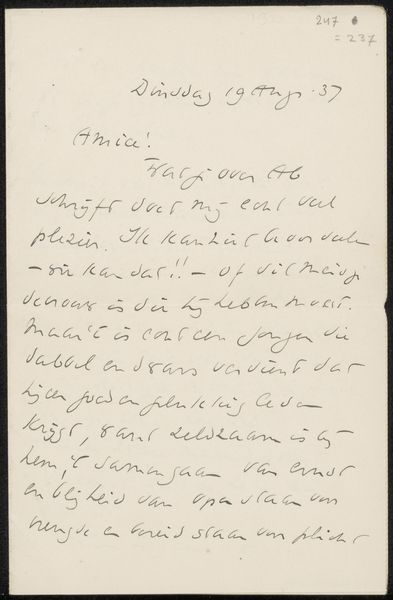 247
= 237
Dinsdag 19 Aug. 37
Amice!
Wat je over Ab
schrijft doet mij echt veel
plezier. Ik kan niet beoordelen
– wie kan dat!! – of dit meisje
daarvoor is die hij hebben moet.
Maar 't is echt een jongen die
dubbel en dwars verdient dat
hij een goed en gelukkig leven
krijgt, want zeldzaam is bij
hem 't samengaan van ernst
en blijheid van open staan voor
vreugde en bereid staan voor plicht